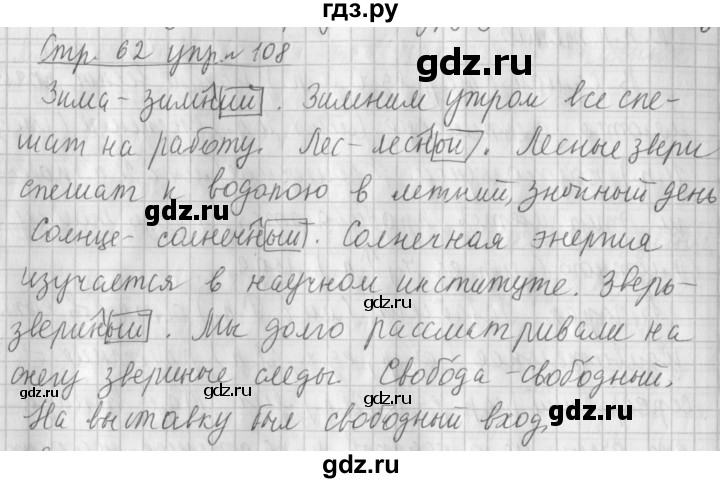 гдз.ру
Стр. 62 упр. 108
gdz.ru
gdz.ru
Зима - зимний. Зимним утром все спе-
gdz.ru
шат на работу. Лес - лесный. Лесные звери
gdz.ru
спешат к водопою в летний, знойный день
gdz.ru
gdz.ru
Солнце - солнечный. Солнечная энергия
изучается в научном институте. Зверь-
gdz.ru
gdz.ru
звериный. Мы долго рассматривали на
снегу звериные следы. Свобо́да - свобо́дный.
gdz.ru
gdz.ru
На выставку был свободный вход.
gdz.ru
gdz.ru
gdz.ru